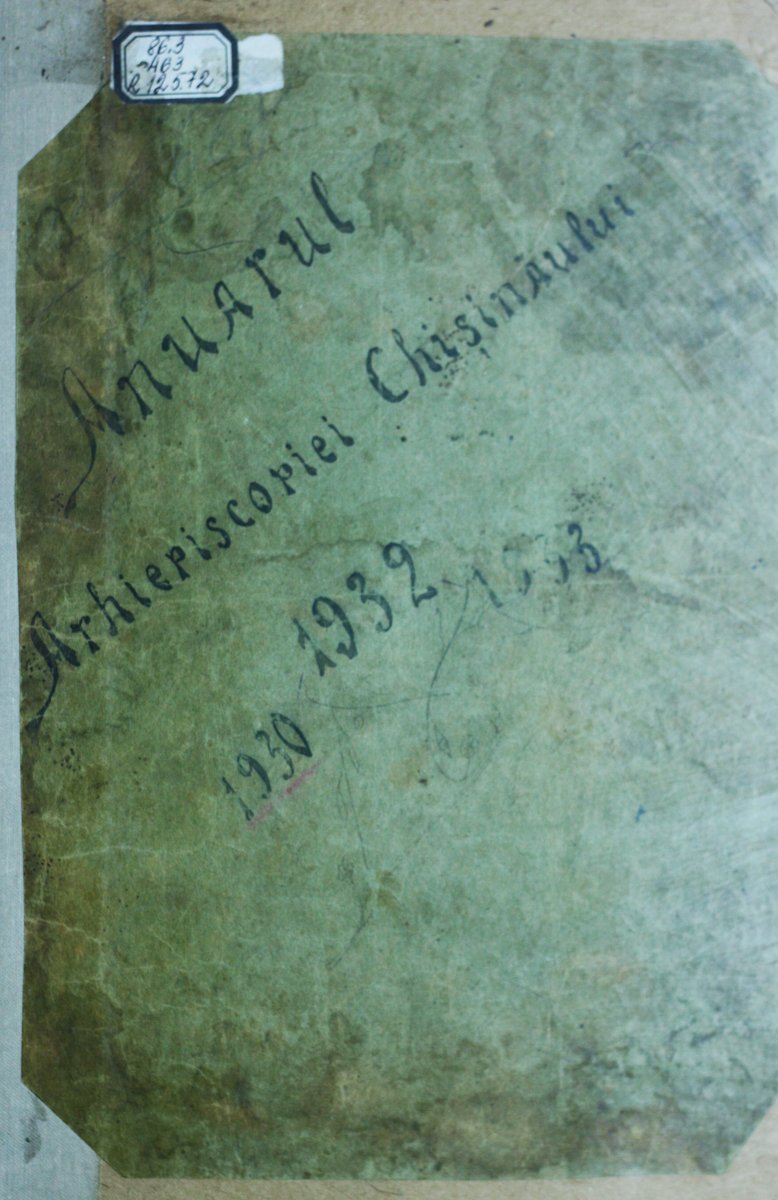 86.3
R 12572
Anuarul
Arhiepiscopiei Chisinaului
1930 1932 1933